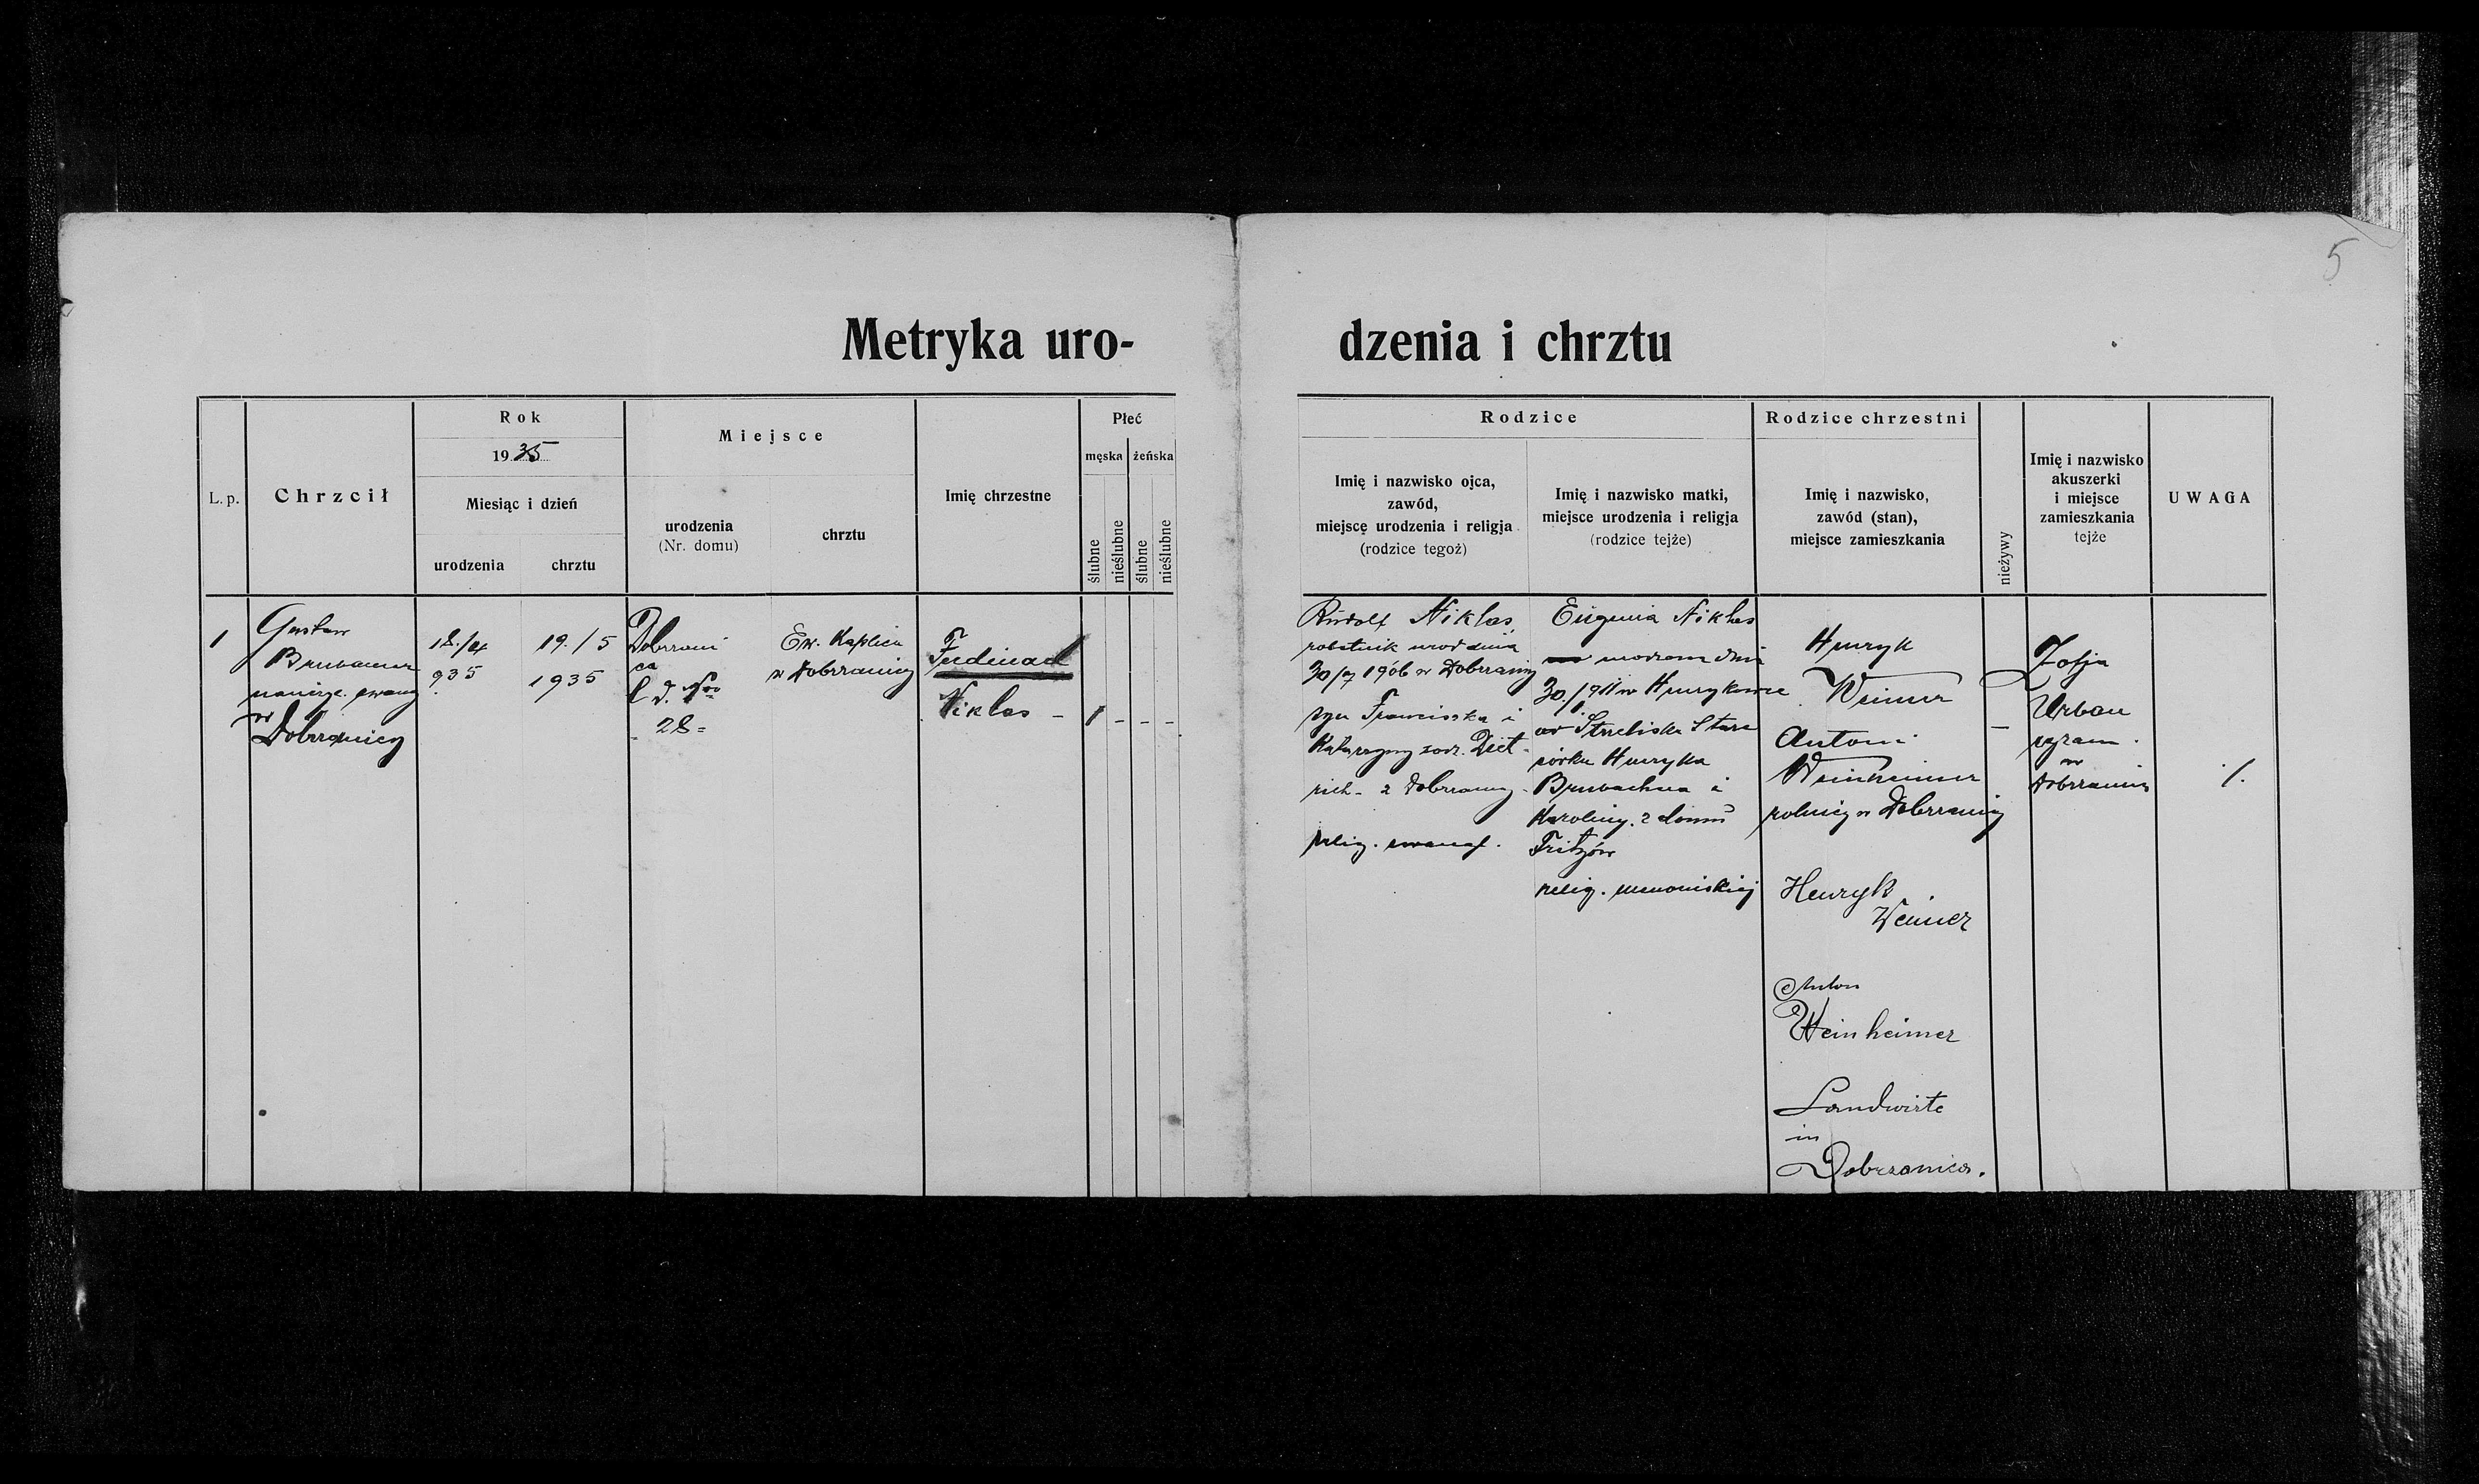 5
Metryka uro-
dzenia i chrztu
L. p.
Chrzcił
Rok
1935
Miesiąc i dzień
urodzenia
chrztu
Miejsce
urodzenia
(Nr. domu)
chrztu
Imię chrzestne
Płeć
męska
żeńska
ślubne
nieślubne
ślubne
nieślubne
Rodzice
Imię i nazwisko ojca,
zawód,
miejsce urodzenia i religja
(rodzice tegoż)
Imię i nazwisko matki,
miejsce urodzenia i religja
(rodzice tejże)
Rodzice chrzestni
Imię i nazwisko,
zawód (stan),
miejsce zamieszkania
nieżywy
Imię i nazwisko
akuszerki
i miejsce
zamieszkania
tejże
UWAGA
1
Gustaw
w
Dobrzanicy
18./4
935
19./5
1935
Dobrzani
ca
l. d.
28=
Ew. Kaplica
w Dobrzanicy
Ferdinand
Niklas -
1 - - -
Rudolf Niklas
robotnik urodz dnia
30/7 1906 w Dobrzanicy
syn Franciszka i
Katarzyny rodz. Diet-
rich - z Dobrzanicy
relig. ewang.
Eugenia Niklas
urodzona dnia
30./1 911 w Henrykowie
Strzeliska Stare
córka Henryka
Brubachera i
Karoliny z domu
Fritzów
relig. menonickiej
Henryk
Weimer
Antoni
Weinheimer
rolnicy w Dobrzanicy
Henryk
Weimer
Anton
Weinheimer
Landwirte
in
Dobrzanica.
-
Zofja
Urban
egzam.
w
Dobrzanicy
./.